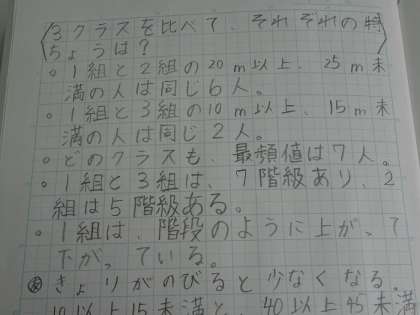 3クラスを比べて、それぞれの特
ちょうは?
○1組と2組の20m以上、25m未
満の人は同じ6人。
○1組と3組の10m以上、15m未
満の人は同じ2人。
○どのクラスも、最頻値は7人。
○1組と3組は、7階級あり、2
組は5階級ある。
○1組は、階段のように上がって
下がっている。
きょりがのびると少なくなる。
10以上15未満と、40以上45未満